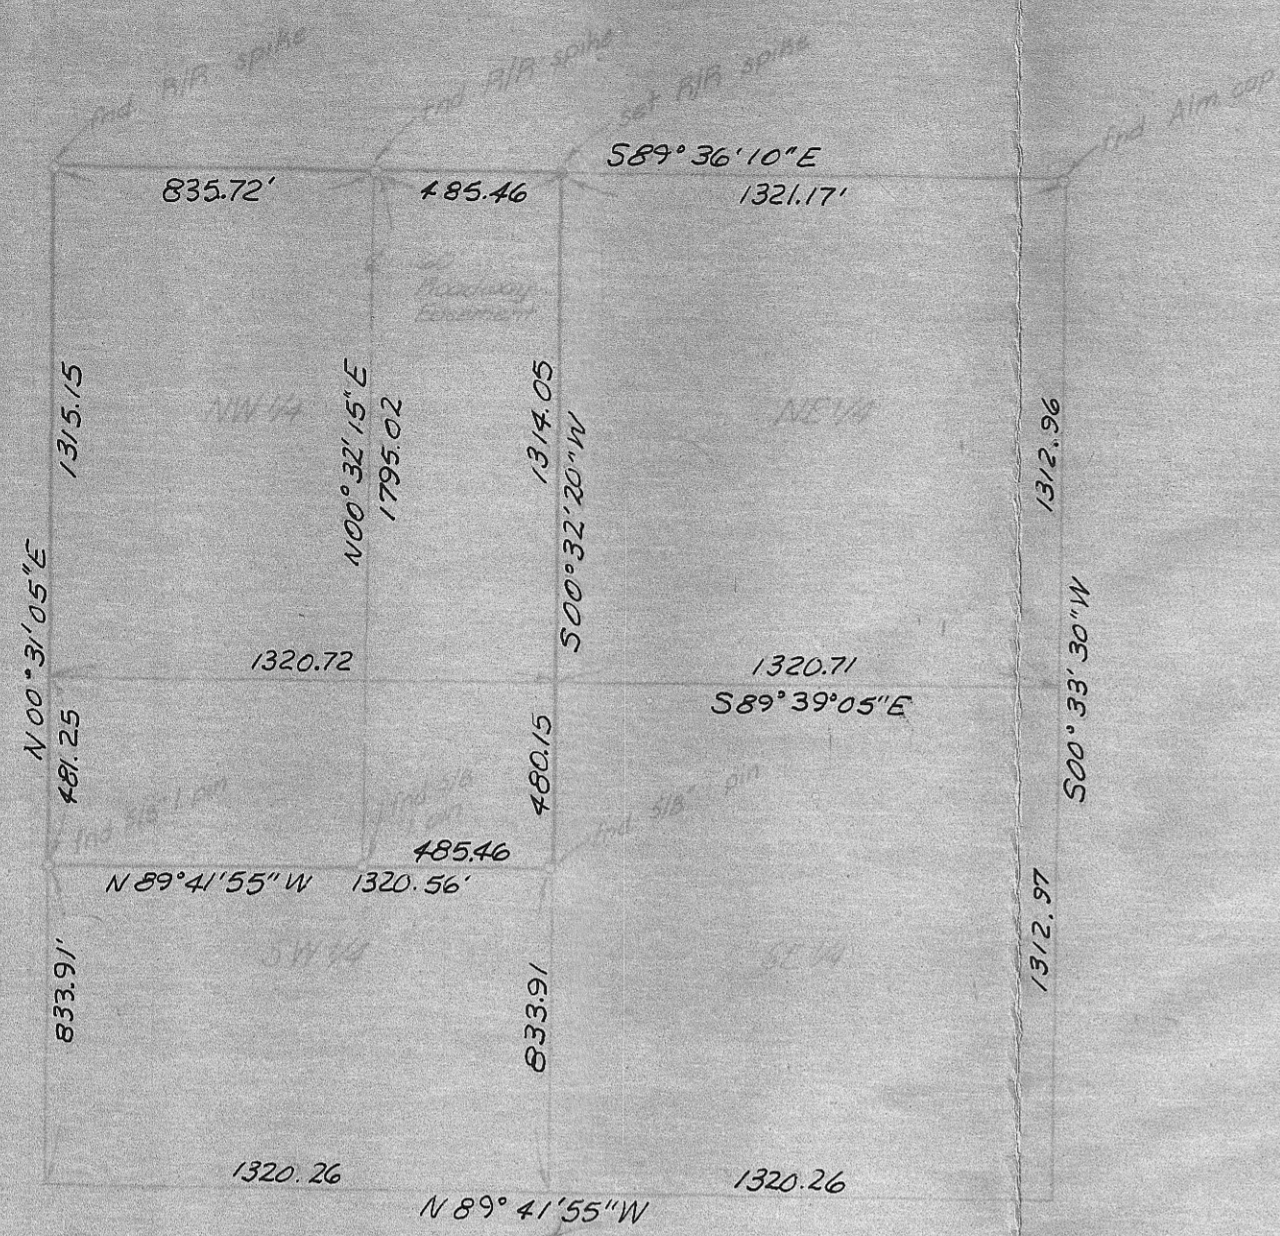 fnd R/R spike
fnd R/R spike
set R/R spike
fnd Alm cap
S89° 36' 10" E
835.72'
485.46
1321.17'
Roadway
Easement
1315.15
NW 1/4
N00° 32' 15" E
1795.02
1314.05
S00° 32' 20" W
NE 1/4
1312.96
N00° 31' 05" E
1320.72
1320.71
S89° 39° 05" E
S00° 33' 30" W
481.25
480.15
fnd 5/8" I pin
fnd 5/8
fnd 5/8" pin
485.46
N 89° 41' 55" W 1320.56'
833.91'
SW 1/4
833.91
SE 1/4
1312.97
1320.26
1320.26
N 89° 41' 55" W